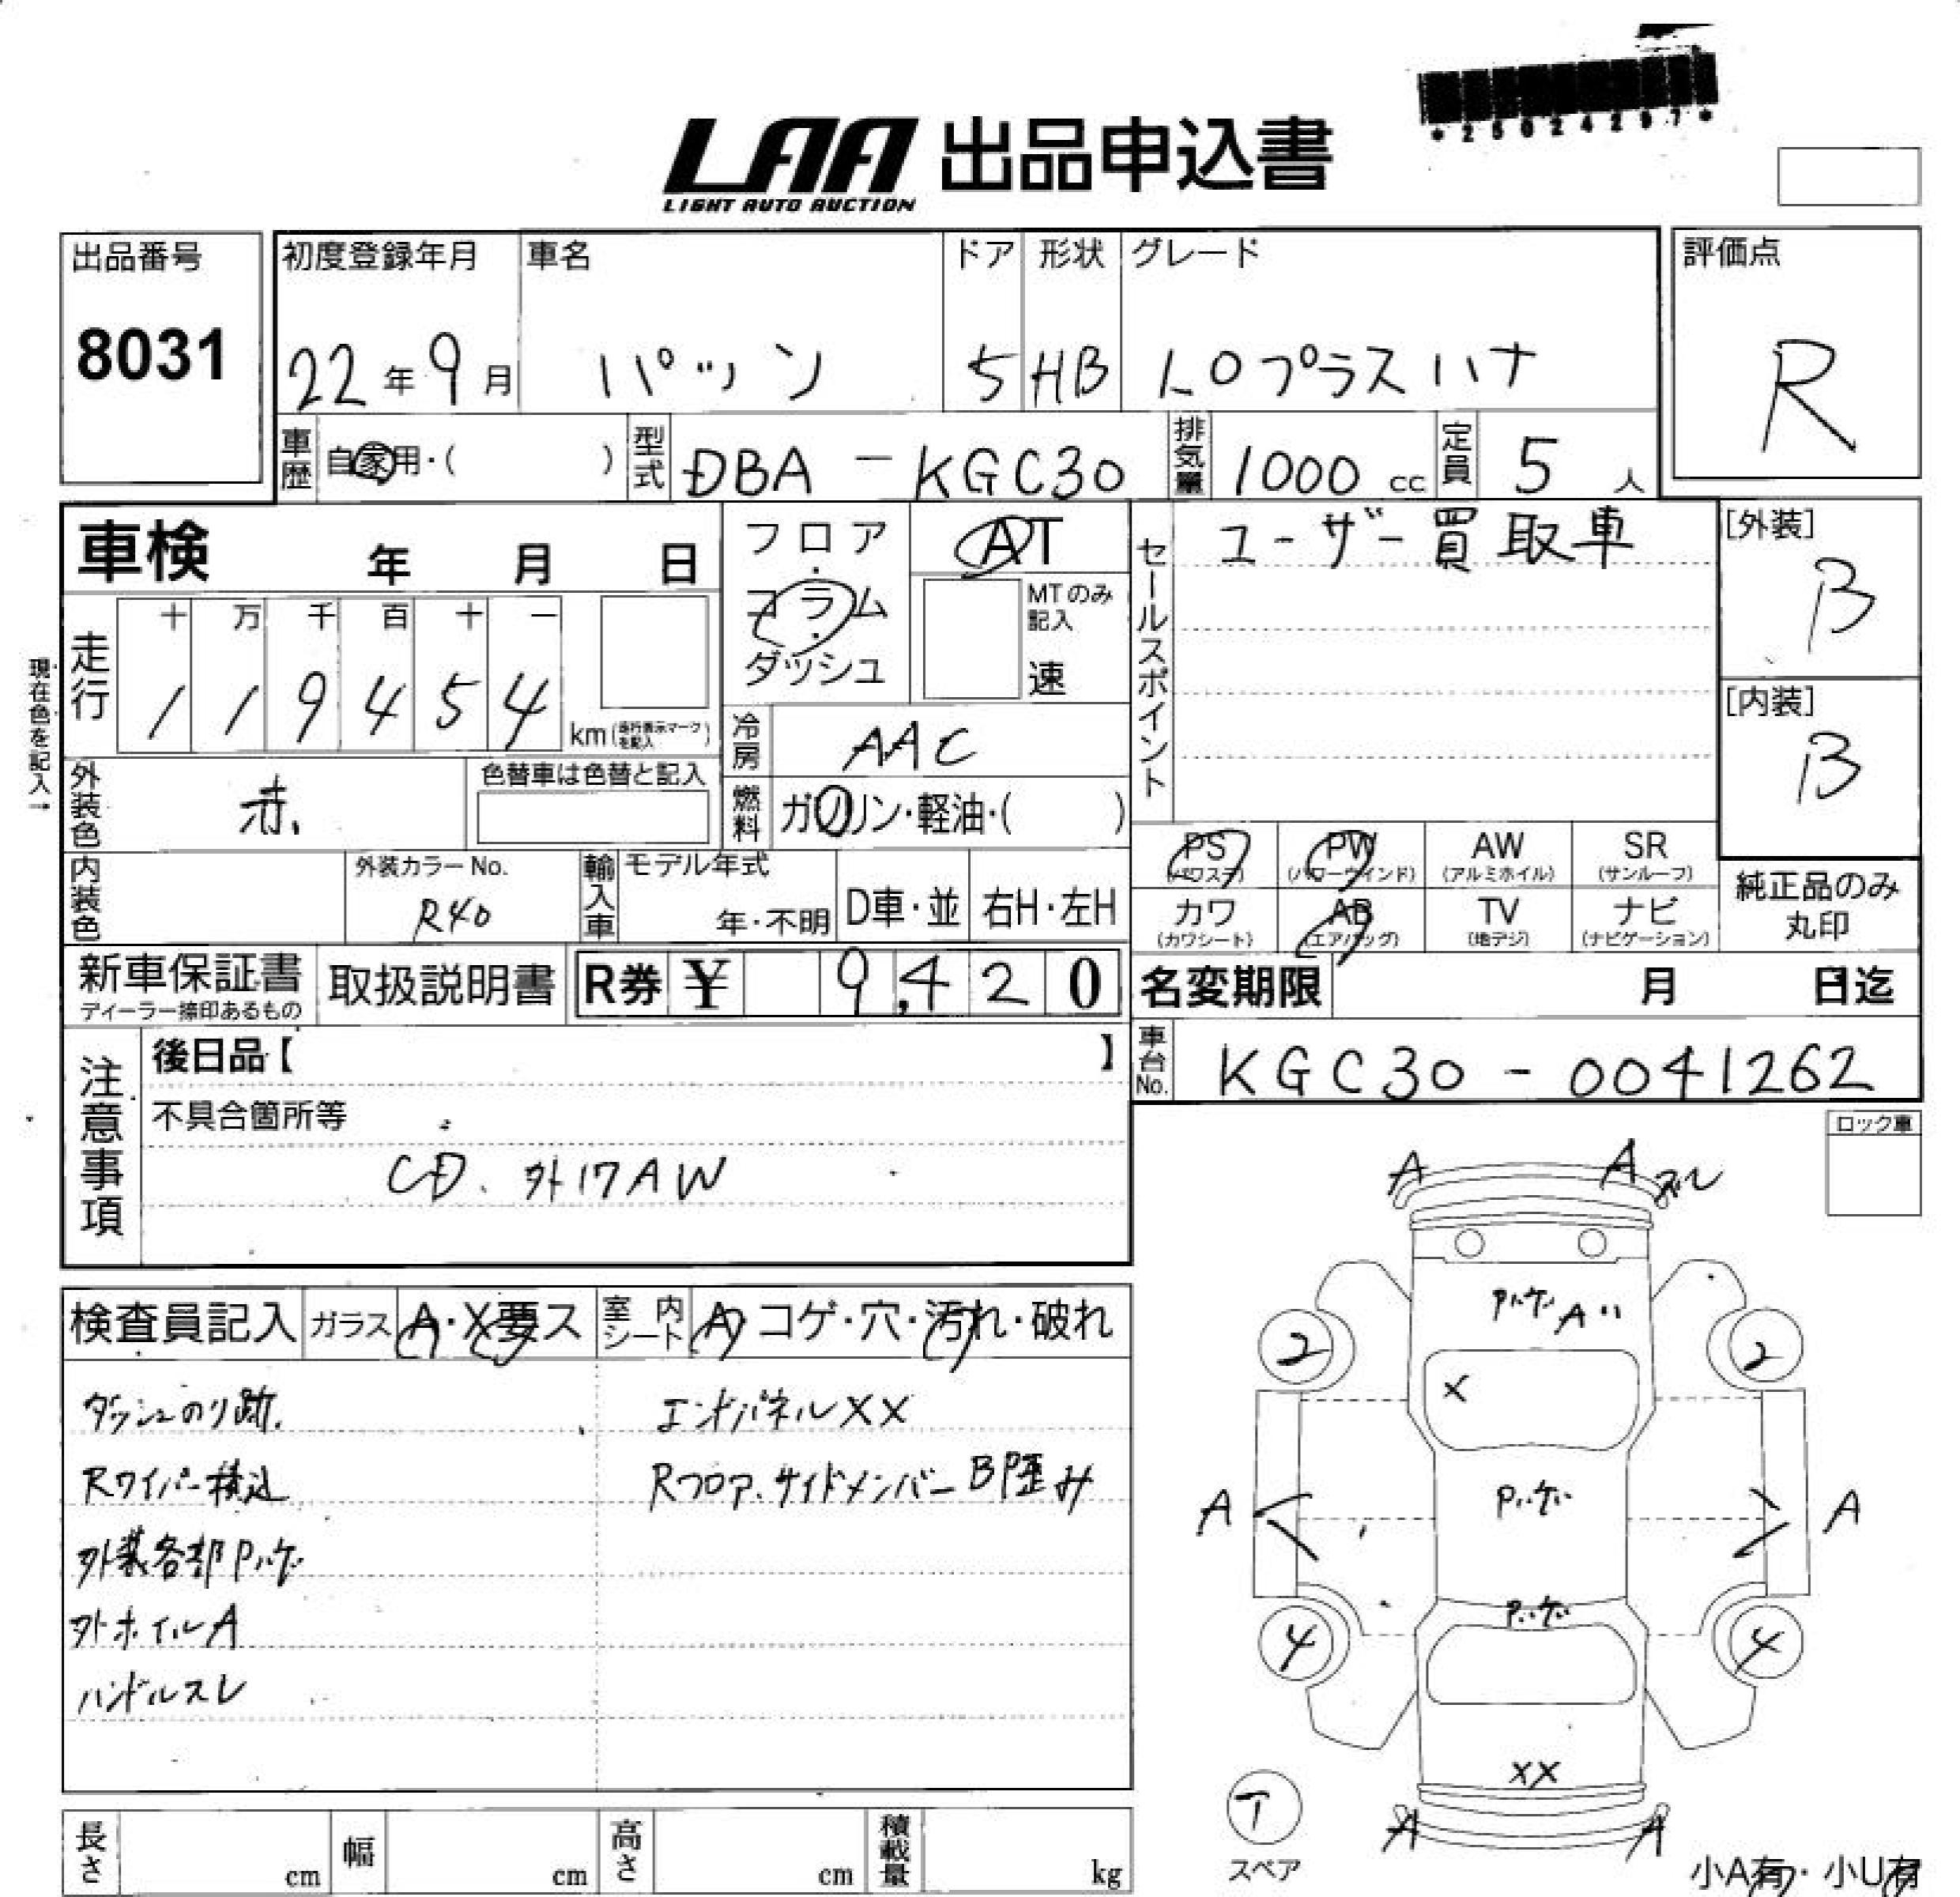 *25024297*
LAA 出品申込書
LIGHT AUTO AUCTION
出品番号
8031
初度登録年月
22年9月
車名
パッソ
ドア
5
形状
HB
グレード
1.0プラスハナ
評価点
R
車歴 自家用・( )
型式 DBA-KGC30
排気量 1000cc
定員 5人
車検 年 月 日
フロア・コラム・ダッシュ
AT
MTのみ記入
速
セールスポイント
ユーザー買取車
[外装]
B
[内装]
B
現在色を記入→
走行
十 万 千 百 十 一
1 1 9 4 5 4
km(走行表示マークを記入)
冷房 AAC
外装色 赤
色替車は色替と記入
燃料 ガソリン・軽油・( )
PS (パワステ)
PW (パワーウインド)
AW (アルミホイル)
SR (サンルーフ)
カワ (カワシート)
AB (エアバッグ)
TV (地デジ)
ナビ (ナビゲーション)
純正品のみ丸印
内装色
外装カラーNo.
R40
輸入車
モデル年式
年・不明
D車・並
右H・左H
新車保証書
ディーラー捺印あるもの
取扱説明書
R券 ¥ 9,420
名変期限 月 日迄
車台No. KGC30-0041262
注意事項
後日品【 】
不具合箇所等
CD、外17AW
ロック車
A A ズレ
検査員記入
ガラス A・X要ス
室内シート A・コゲ・穴・汚れ・破れ
ダッシュのり跡
エンドパネルXX
Rワイパー積込
Rフロア、サイドメンバーB歪み
外装各部Pハゲ
外ホイルA
ハンドルスレ
Pハゲ A
2 2
X
A Pハゲ A
Pハゲ
4 4
XX
A A
T
スペア
長さ cm
幅 cm
高さ cm
積載量 kg
小A有・小U有